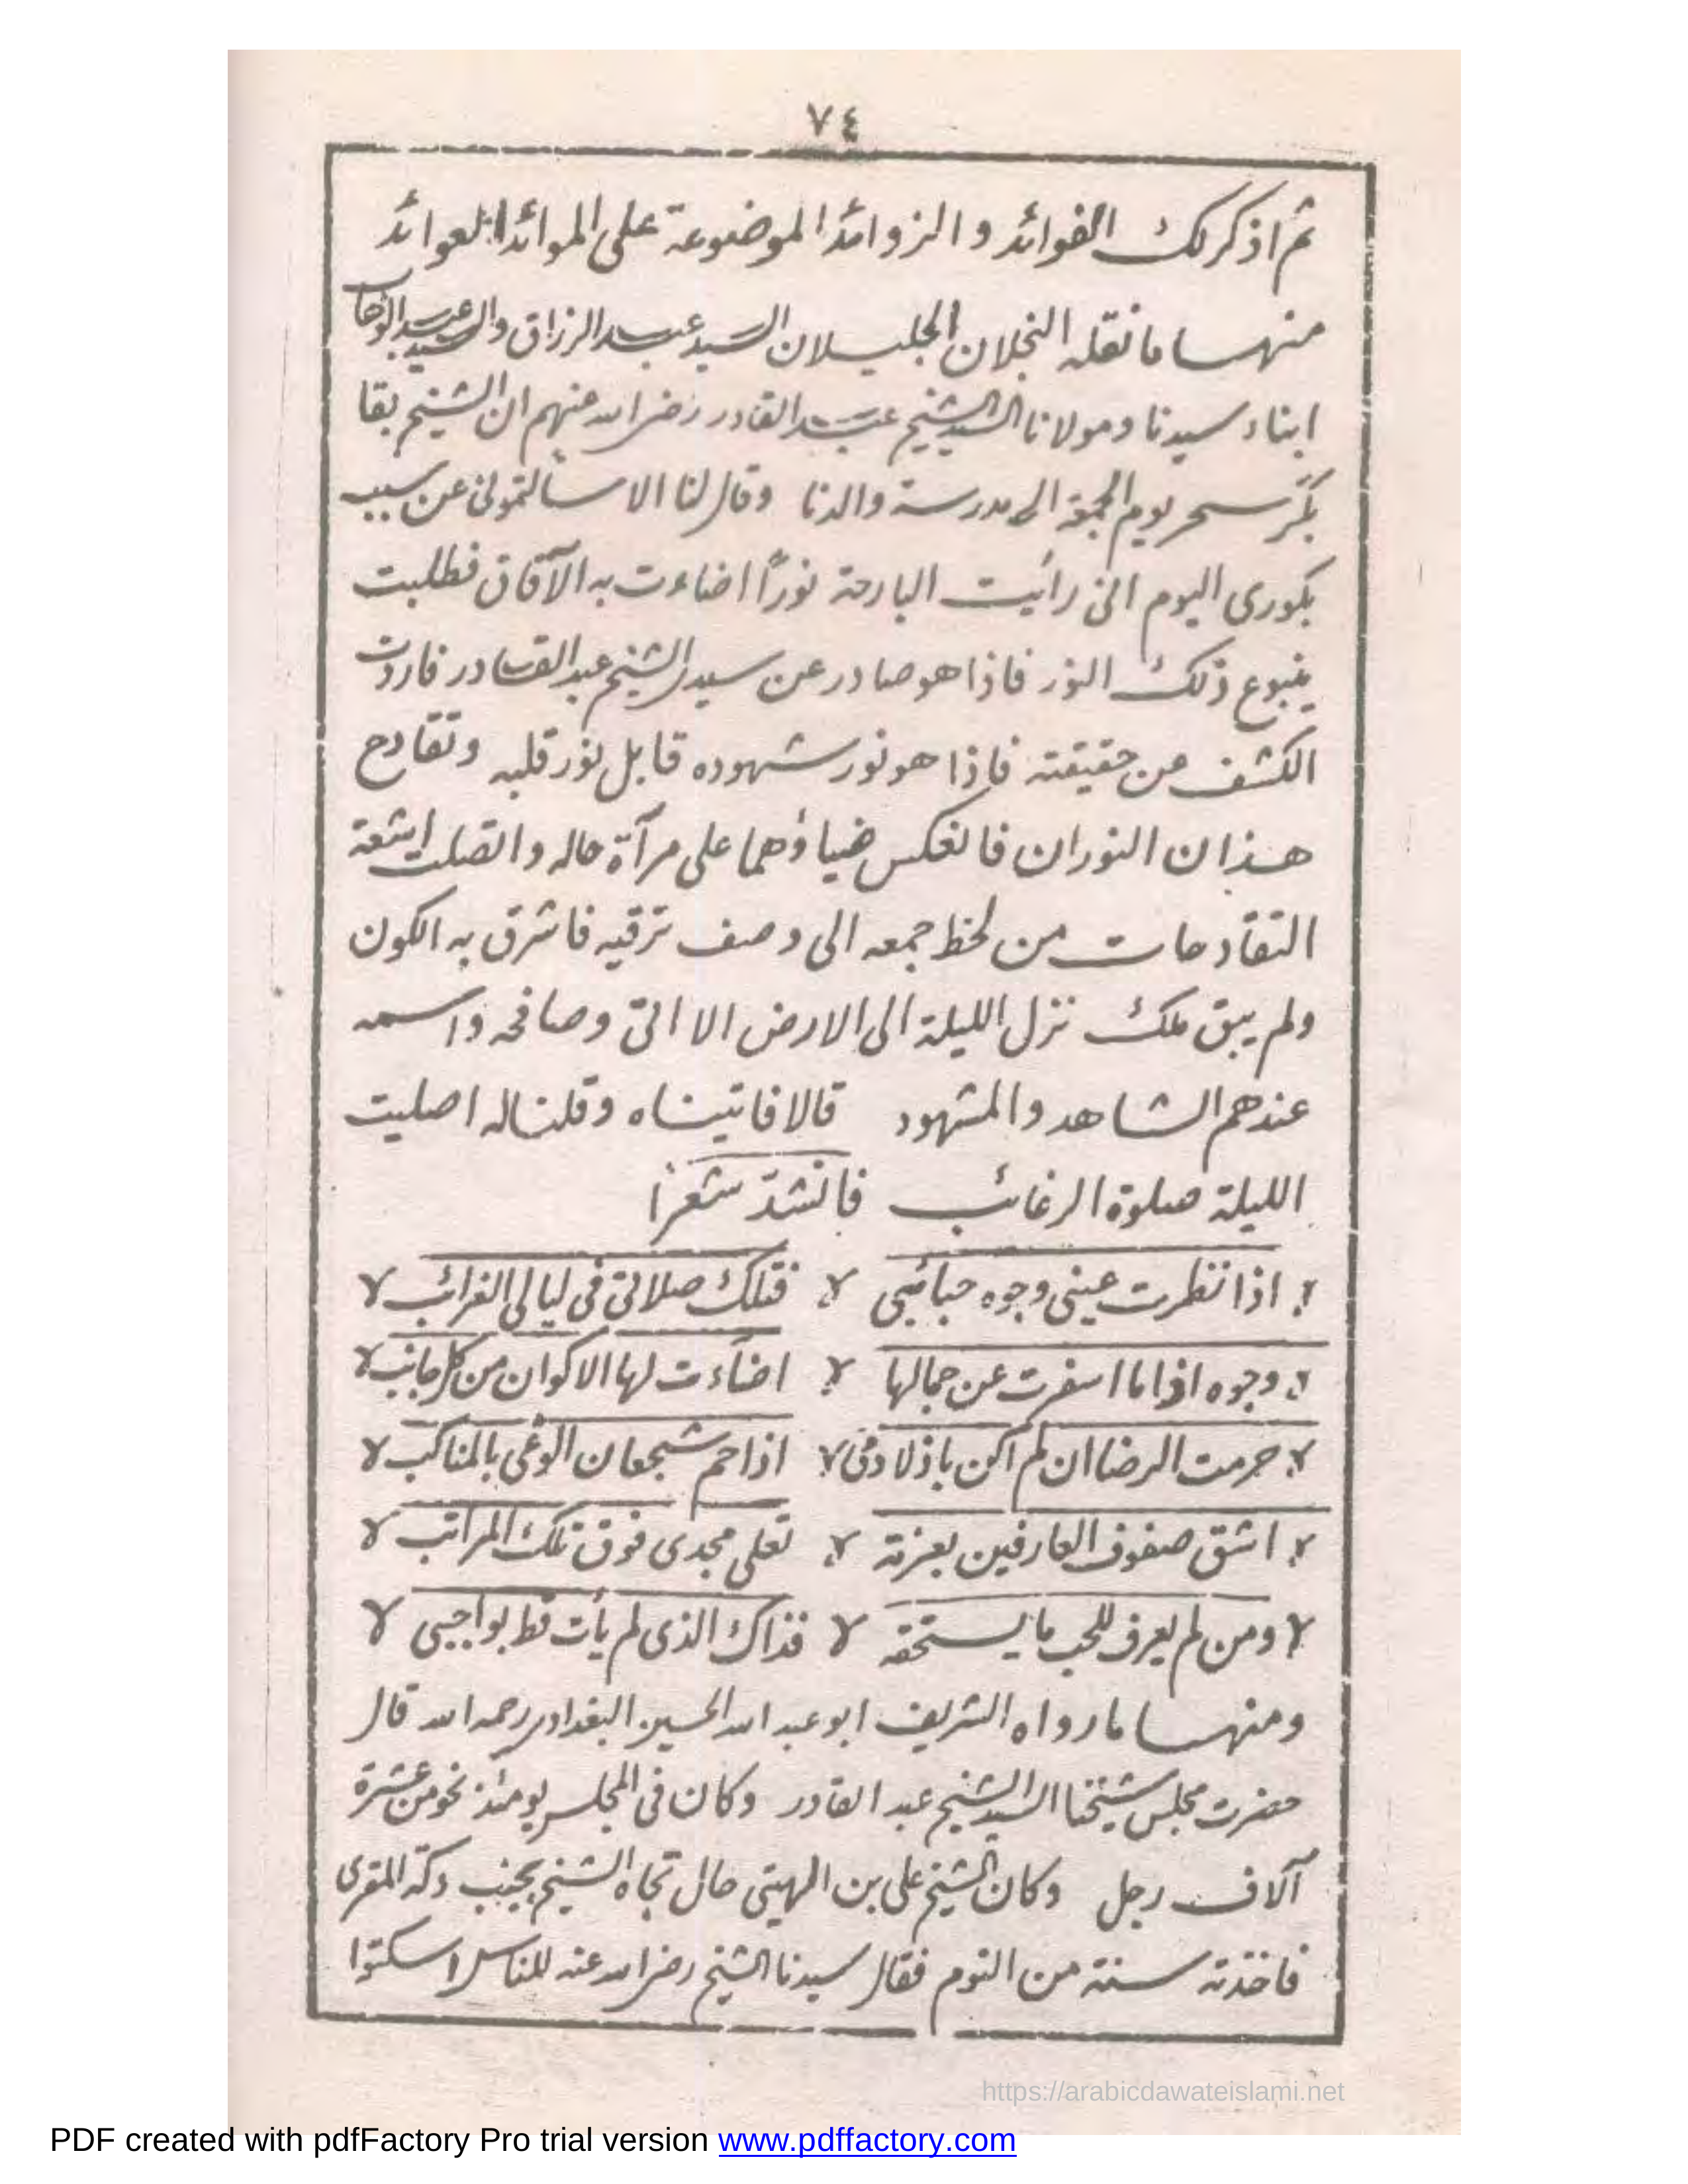 ٧٤
ثم اذكر لك الفوائد والزوائد الموضوعة على الموائد العوائد
منها ما نقله النجلان الجليلان السيد عبد الرزاق والسيد عبد الوهاب
ابناء سيدنا ومولانا السيد الشيخ عبد القادر رضى الله عنهم ان الشيخ بقا
بكّر سحر يوم الجمعة الى مدرسة والدنا وقال لنا الا سألتمونى عن سبب
بكورى اليوم انى رأيت البارحة نورًا اضاءت به الآفاق فطلبت
ينبوع ذلك النور فاذا هو صادر عن سيدى الشيخ عبد القادر فاردت
الكشف عن حقيقته فاذا هو نور شهوده قابل نور قلبه وتقادح
هذان النوران فانعكس ضياؤهما على مرآة حاله واتصلت اشعة
التقادحات من لحظ جمعه الى وصف ترقيه فاشرق به الكون
ولم يبق ملك نزل الليلة الى الارض الا اتى وصافحه واسمه
عندهم الشاهد والمشهود قالا فاتيناه وقلنا له اصليت
الليلة صلوة الرغائب فانشد شعرًا
اذا نظرت عينى وجوه حبائبى فتلك صلاتى فى ليالى الغرائب
وجوه اذا ما اسفرت عن جمالها اضاءت لها الاكوان من كل جانب
حرمت الرضا ان لم اكن باذلا دمى اذا حم شجعان الوغى بالمناكب
اشق صفوف العارفين بعزمة تعلى مجدى فوق تلك المراتب
ومن لم يعرف للحب ما يستحقه فذاك الذى لم يأت قط بواجبى
ومنها ما رواه الشريف ابو عبد الله الحسين البغدادى رحمه الله قال
حضرت مجلس شيخنا السيد الشيخ عبد القادر وكان فى المجلس يومئذ نحو من عشرة
آلاف رجل وكان الشيخ على بن الهيتى حال تجاه الشيخ بجنب دكة المقرى
فاخذته سنة من النوم فقال سيدنا الشيخ رضى الله عنه للناس اسكتوا
https://arabicdawateislami.net
PDF created with pdfFactory Pro trial version www.pdffactory.com